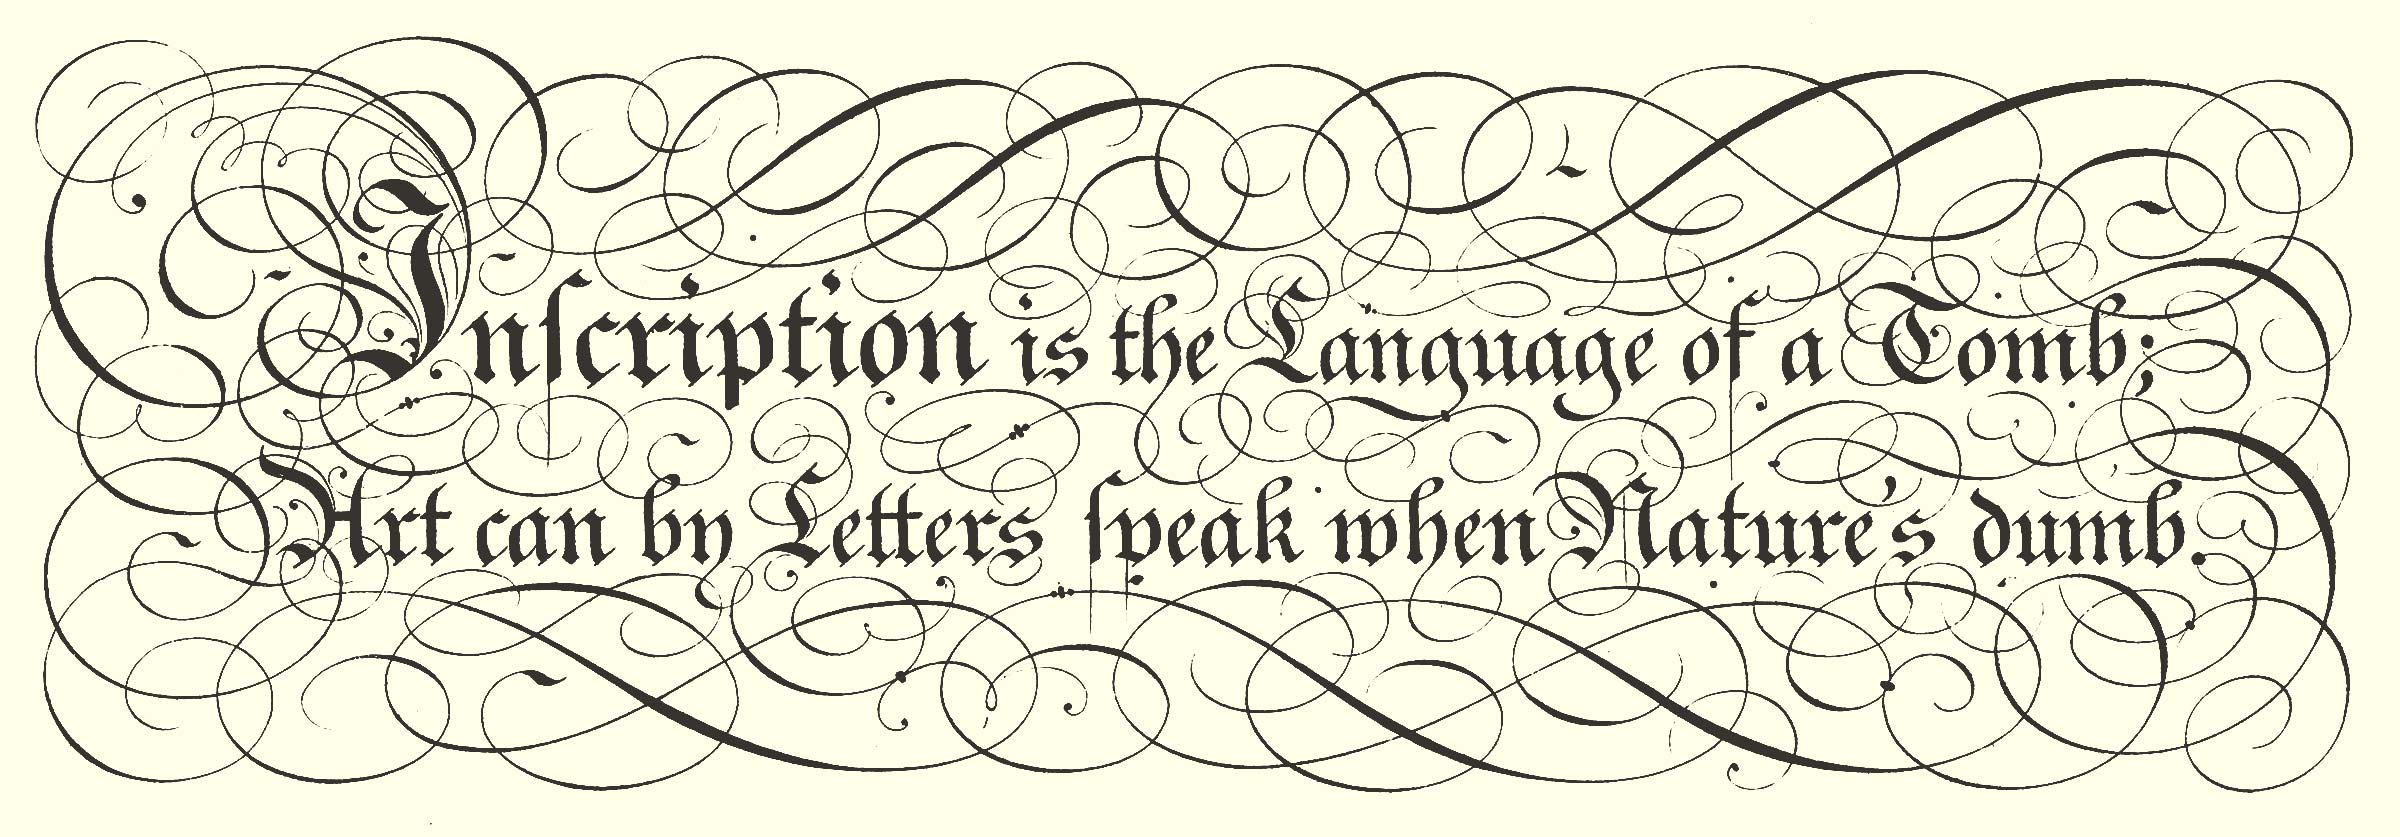 Inſcription is the Language of a Tomb;
Art can by Letters ſpeak when Nature's dumb.